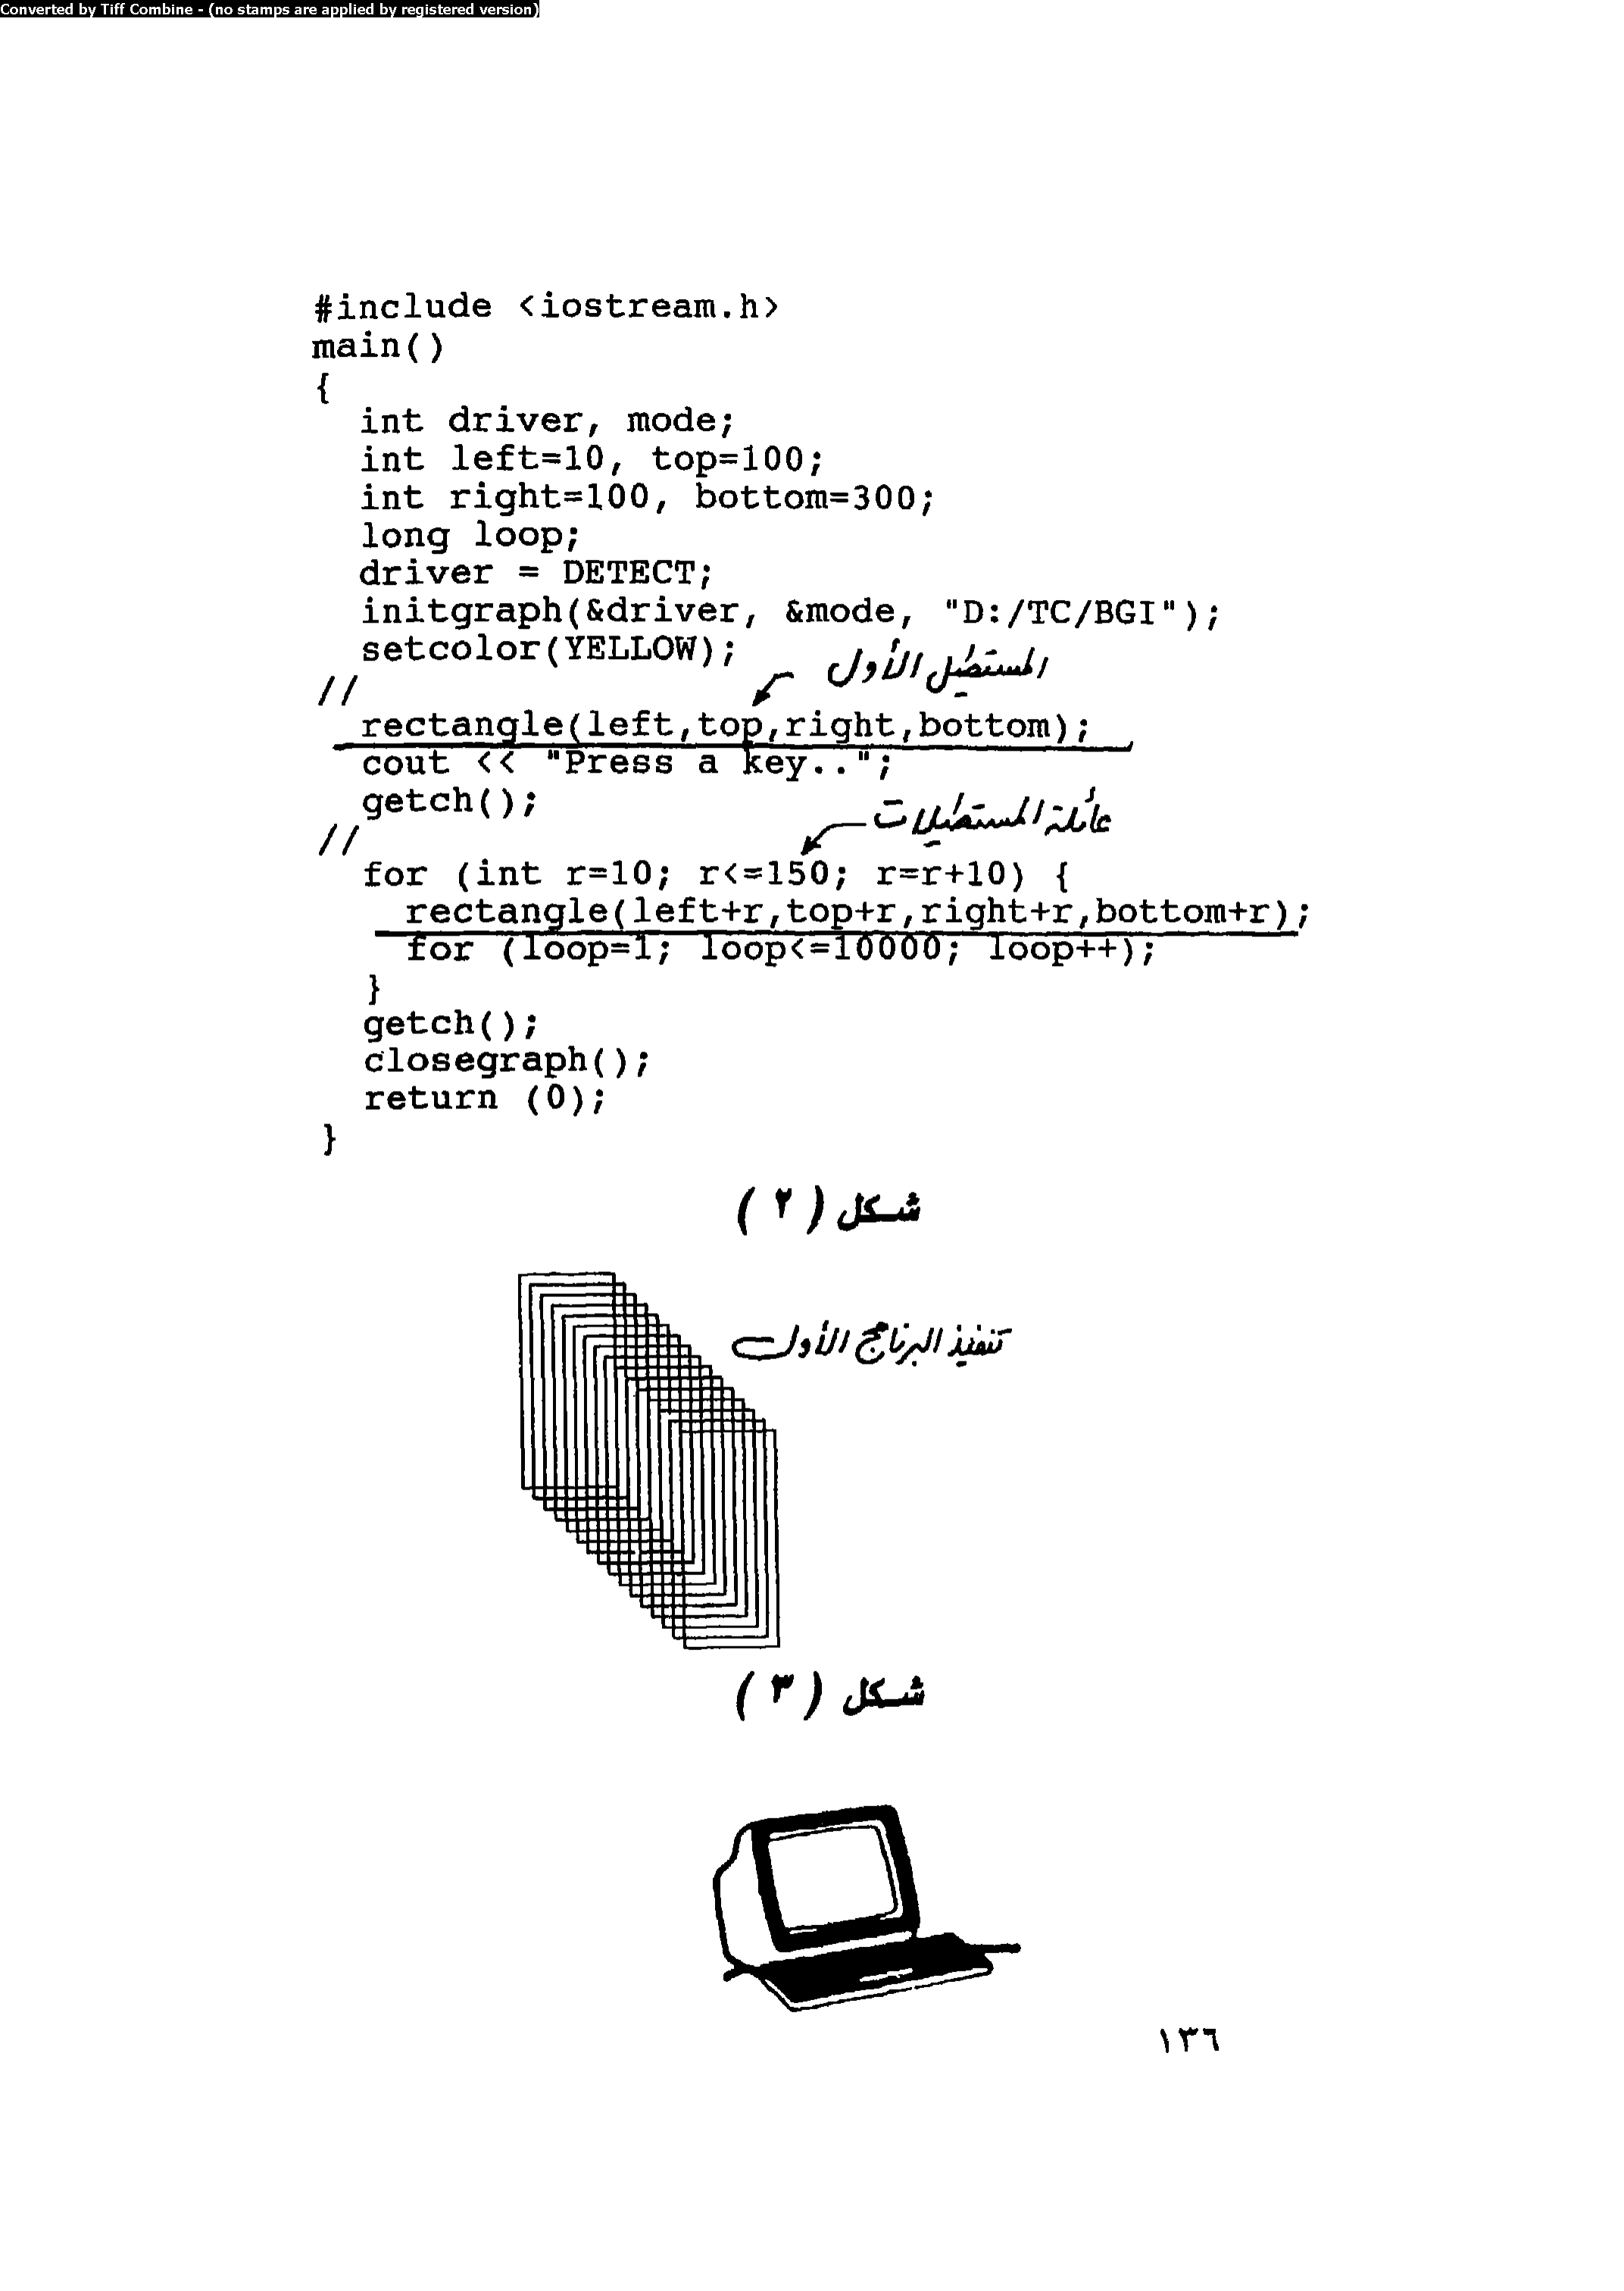 Converted by Tiff Combine - (no stamps are applied by registered version)
#include <iostream.h>
main()
{
int driver, mode;
int left=10, top=100;
int right=100, bottom=300;
long loop;
driver = DETECT;
initgraph(&driver, &mode, "D:/TC/BGI");
setcolor(YELLOW);
المستطيل الأول
//
rectangle(left,top,right,bottom);
cout << "Press a key..";
getch();
عائلة المستطيلات
//
for (int r=10; r<=150; r=r+10) {
rectangle(left+r,top+r,right+r,bottom+r);
for (loop=1; loop<=10000; loop++);
}
getch();
closegraph();
return (0);
}
شكل (٢)
تنفيذ البرنامج الأول
شكل (٣)
١٣٦